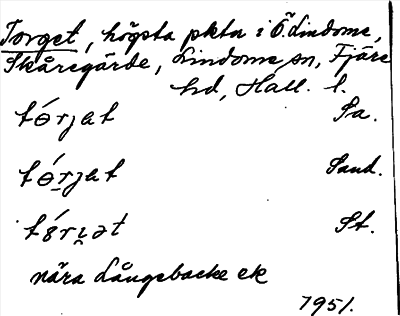 Torget, högsta pkta i Ö. Lindome,
Skåregärde, Lindome sn, Fjäre
hd, Hall. l.
tɵ́rjat Sa.
tɵ́rjat Sand.
tȣ́ri̯ət St.
nära Långebacke ek
1951.